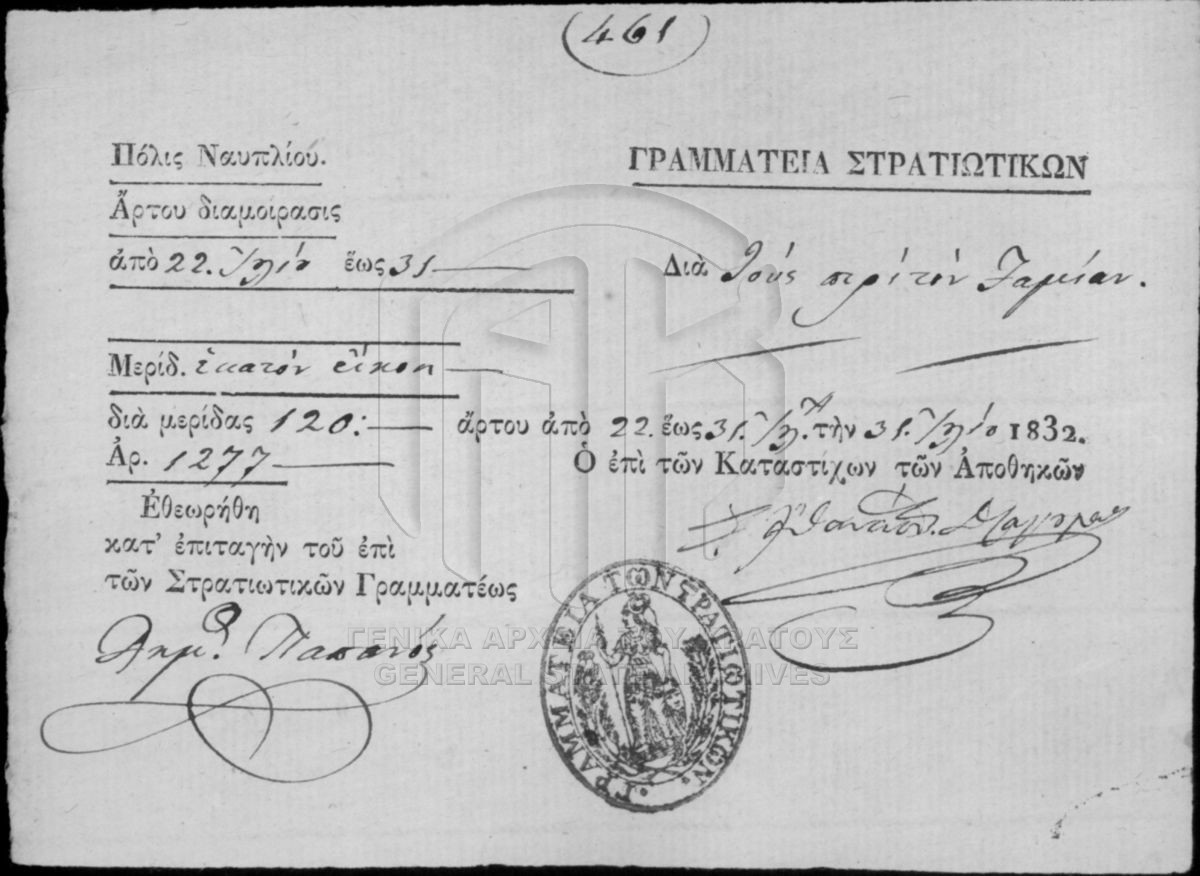 (461)
Πόλις Ναυπλίου.
ΓΡΑΜΜΑΤΕΙΑ ΣΤΡΑΤΙΩΤΙΚΩΝ
Ἄρτου διαμοίρασις
ἀπὸ 22. Ἰουλίου ἕως 31
Διὰ τοὺς περὶ τὸν Ταμίαν.
Μερίδ. ἑκατὸν εἴκοσι
διὰ μερίδας 120: ἄρτου ἀπὸ 22. ἕως 31. Ἰουλ. τὴν 31. Ἰουλίου 1832.
Ἀρ. 1277
Ὁ ἐπὶ τῶν Καταστίχων τῶν Ἀποθηκῶν
Ἐθεωρήθη
κατ' ἐπιταγὴν τοῦ ἐπὶ
τῶν Στρατιωτικῶν Γραμματέως
ΓΡΑΜΜΑΤΕΙΑ ΤΩΝ ΣΤΡΑΤΙΩΤΙΚΩΝ.
ΓΕΝΙΚΑ ΑΡΧΕΙΑ ΤΟΥ ΚΡΑΤΟΥΣ
GENERAL STATE ARCHIVES